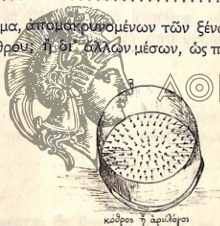 μα, ἀπομακρυνομένων τῶν ξένω
θρου; ἢ δι' ἄλλων μέσων, ὡς π
ΑΘ
κόθρος ἢ ἀρυλόγος